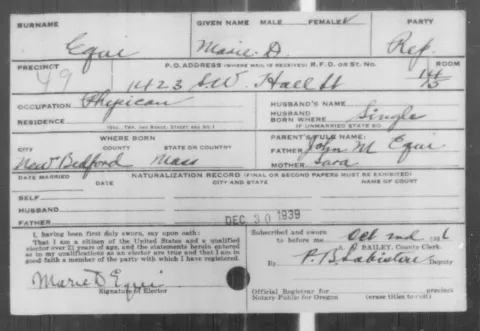 SURNAME GIVEN NAME MALE FEMALE ✓ PARTY
Equi Marie D. Rep.
PRECINCT P.O. ADDRESS (WHERE MAIL IS RECEIVED) R.F.D. OR ST. NO. ROOM
49 1423 S.W. Hall St
OCCUPATION Physican HUSBAND'S NAME
HUSBAND BORN WHERE Single
RESIDENCE IF UNMARRIED STATE SO
WHERE BORN PARENT'S FULL NAME:
CITY STATE OR COUNTRY FATHER John M Equi
New Bedford Mass MOTHER Sara
DATE MARRIED NATURALIZATION RECORD (FINAL OR SECOND PAPERS MUST BE EXHIBITED)
CITY AND STATE NAME OF COURT
SELF
HUSBAND
FATHER DEC 30 1939
I, having been first duly sworn, say upon oath:
That I am a citizen of the United States and a qualified
elector over 21 years of age, and the statements herein entered
as to my qualifications as an elector are true and that I am in
good faith a member of the party with which I have registered.
Marie D Equi
Signature of Elector
Subscribed and sworn
to before me Oct 2nd 193
A. BAILEY, County Clerk.
By Deputy
Official Registrar for precinct
Notary Public for Oregon (erase titles to suit)